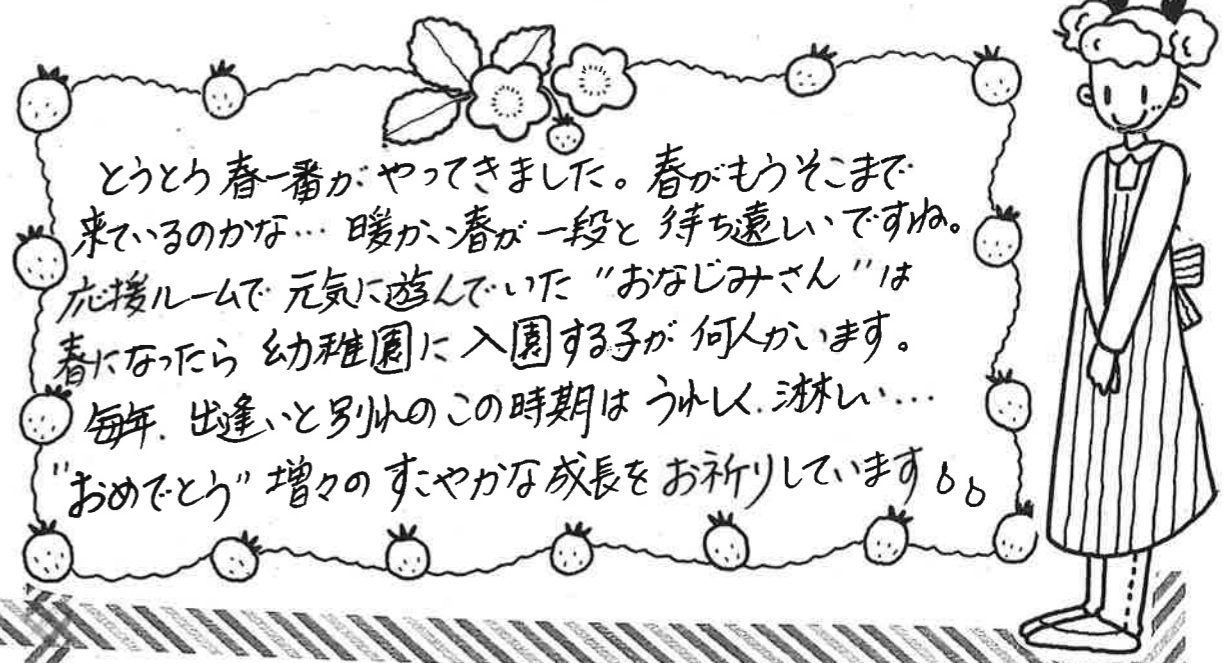 とうとう春一番がやってきました。春がもうそこまで
来ているのかな… 暖かい春が一段と待ち遠しいですね。
応援ルームで元気に遊んでいた"おなじみさん"は
春になったら幼稚園に入園する子が何人かいます。
毎年、出逢いと別れのこの時期はうれしく、淋しい…
"おめでとう"増々のすこやかな成長をお祈りしています